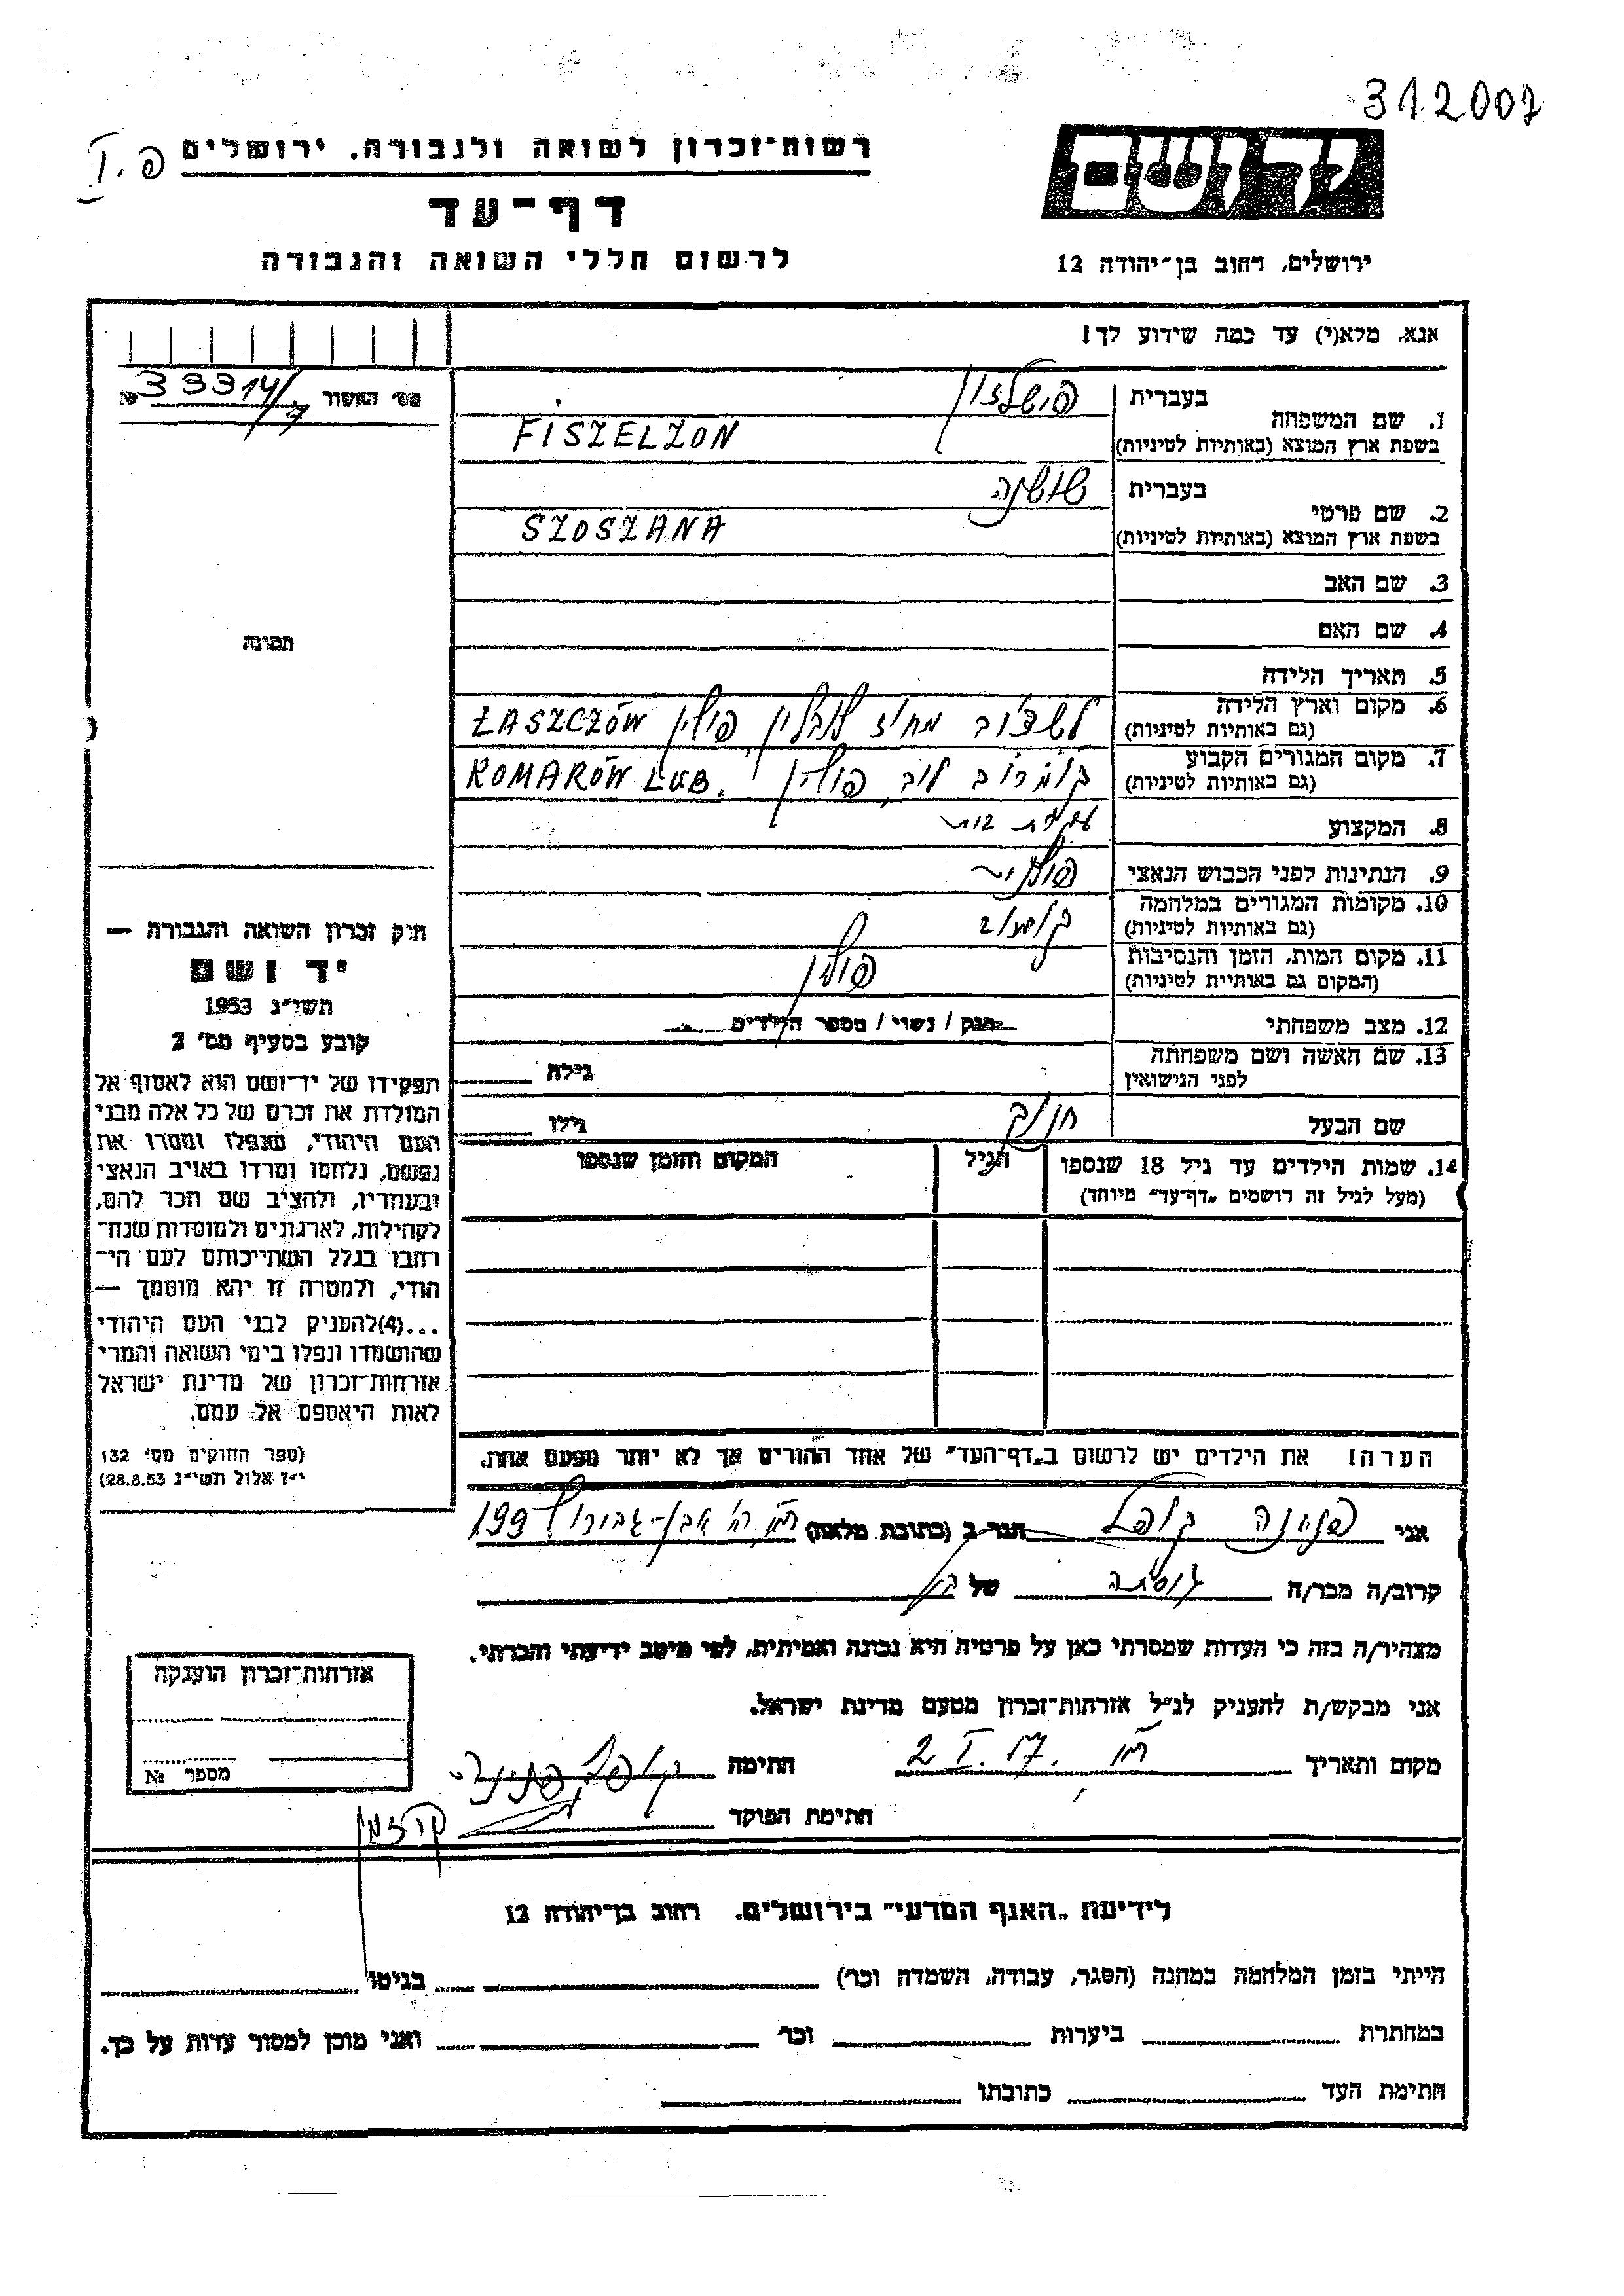 312007
פ. I
רשות־זכרון לשואה ולגבורה. ירושלים
ידושם
דף־עד
לרשום חללי השואה והגבורה
ירושלים, רחוב בן־יהודה 12
אנא, מלא(י) עד כמה שידוע לך!
מס׳ האשור № 33314/7
1. שם המשפחה
בעברית
פישלזון
בשפת ארץ המוצא (באותיות לטיניות)
FISZELZON
2. שם פרטי
בעברית
שושנה
בשפת ארץ המוצא (באותיות לטיניות)
SZOSZANA
3. שם האב
4. שם האם
תמונה
5. תאריך הלידה
6. מקום וארץ הלידה
(גם באותיות לטיניות)
לשצ׳וב מחוז לובלין פולין ŁASZCZÓW
7. מקום המגורים הקבוע
(גם באותיות לטיניות)
קומרוב לוב, פולין KOMARÓW LUB.
8. המקצוע
עקרת בית
9. הנתינות לפני הכבוש הנאצי
פולנית
10. מקומות המגורים במלחמה
(גם באותיות לטיניות)
11. מקום המות, הזמן והנסיבות
(המקום גם באותיית לטיניות)
פולין
12. מצב משפחתי
רנק / נשוי / מספר הילדים
13. שם האשה ושם משפחתה
לפני הנישואין
גילה
שם הבעל
גילו
14. שמות הילדים עד גיל 18 שנספו
(מעל לגיל זה רושמים „דף־עד״ מיוחד)
הגיל
המקום והזמן שנספו
חוק זכרון השואה והגבורה —
יד ושם
תשי״ג 1953
קובע בסעיף מס׳ 2
תפקידו של יד־ושם הוא לאסוף אל
המולדת את זכרם של כל אלה מבני
העם היהודי, שנפלו ומסרו את
נפשם, נלחמו ומרדו באויב הנאצי
ובעוזריו, ולהציב שם וזכר להם,
לקהילות, לארגונים ולמוסדות שנח־
רבו בגלל השתייכותם לעם הי־
הודי, ולמטרה זו יהא מוסמך —
...(4)להעניק לבני העם היהודי
שהושמדו ונפלו בימי השואה והמרי
אזרחות־זכרון של מדינת ישראל
לאות היאספם אל עמם.
(ספר החוקים מס׳ 132
י״ז אלול תשי״ג 28.8.53)
הערה! את הילדים יש לרשום ב„דף־העד״ של אחד ההורים אך לא יותר מפעם אחת.
אני פנינה קופל הגר ב (כתובת מלאה) ת״א רח׳ אבן־גבירול 199
קרוב/ה מכר/ה גיסתה של
מצהיר/ה בזה כי העדות שמסרתי כאן על פרטיה היא נכונה ואמיתית, לפי מיטב ידיעתי והכרתי.
אני מבקש/ת להעניק לנ״ל אזרחות־זכרון מטעם מדינת ישראל.
מקום ותאריך ת״א 2 I. 57. חתימה קופל פנינה
חתימת הפוקד
אזרחות־זכרון הוענקה
מספר №
לידיעת „האגף המדעי״ בירושלים. רחוב בן־יהודה 12
הייתי בזמן המלחמה במחנה (הסגר, עבודה, השמדה וכו׳) בגיטו
במחתרת ביערות וכו׳ ואני מוכן למסור עדות על כך.
חתימת העד כתובתו